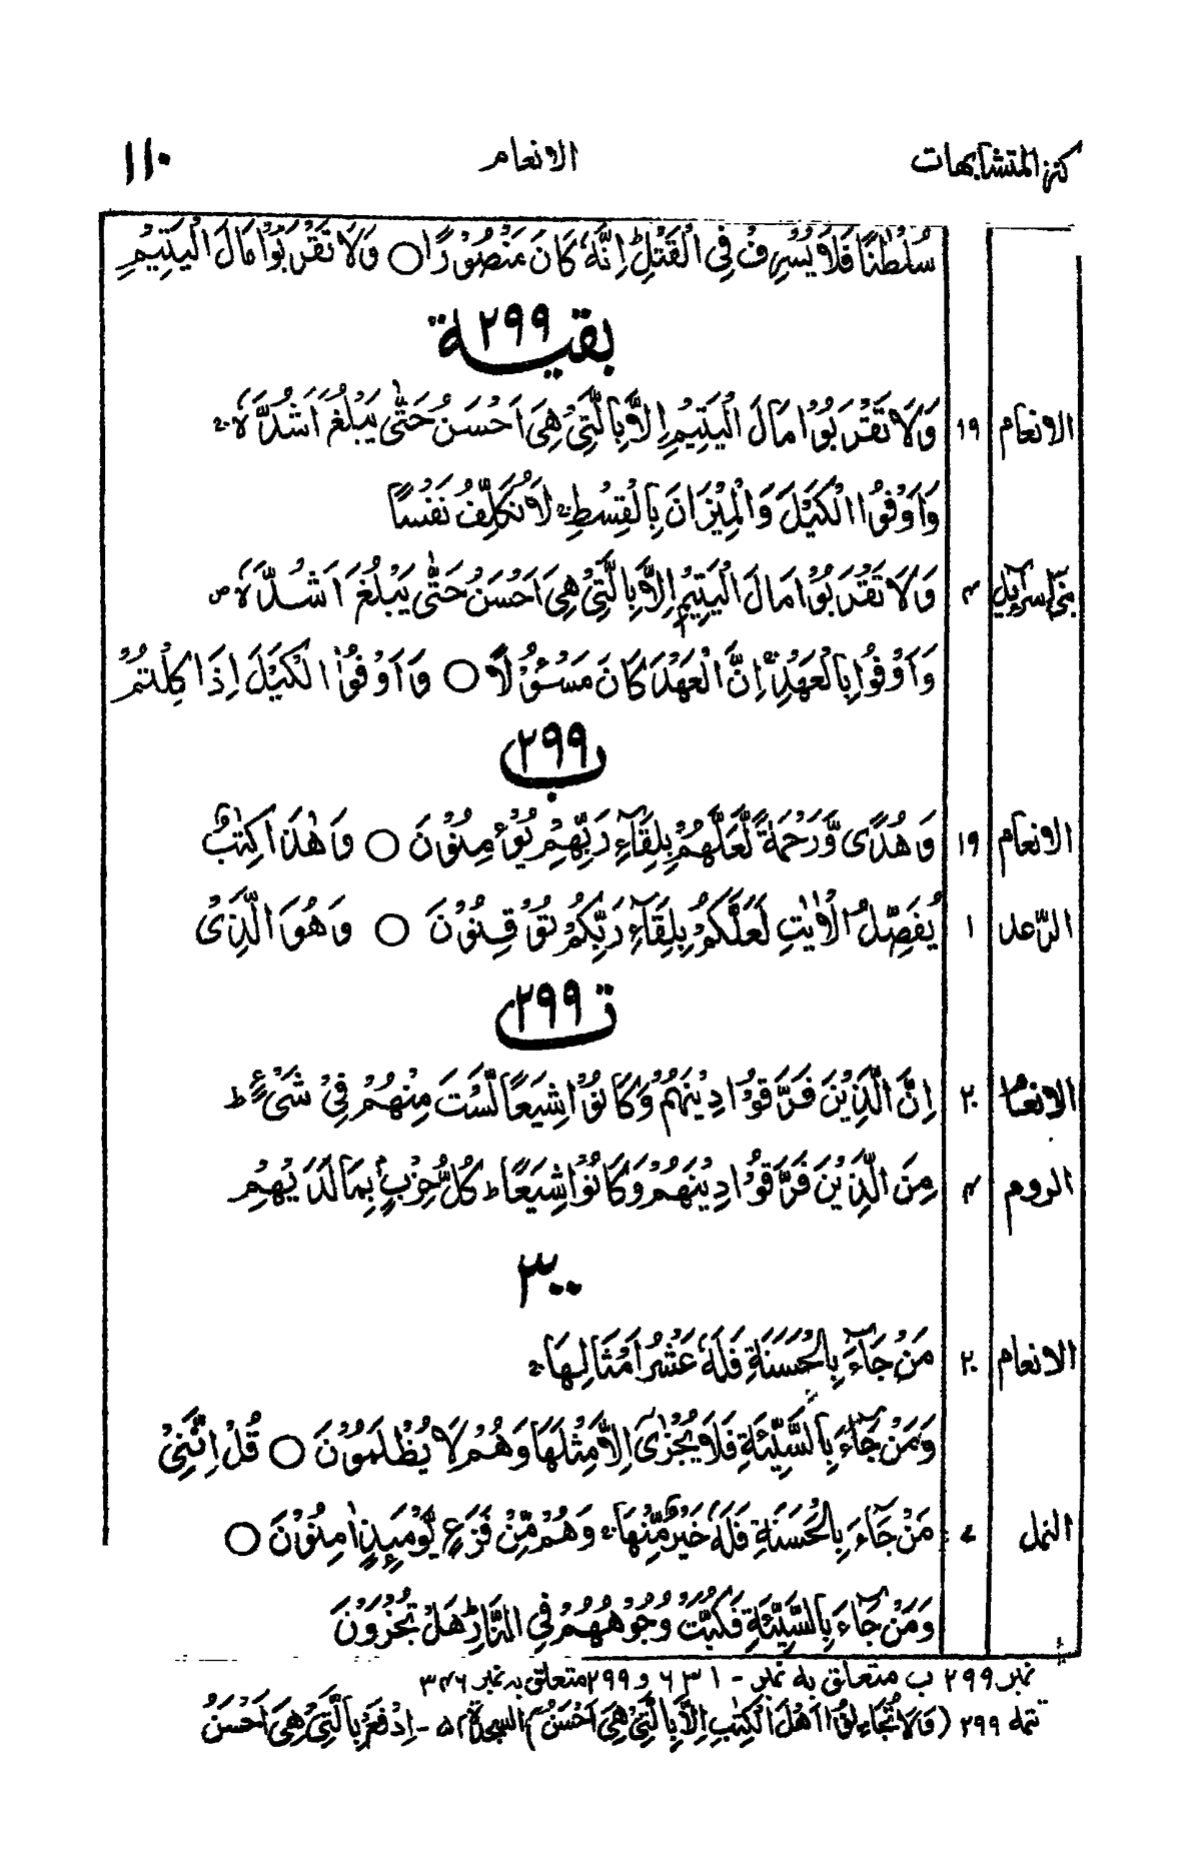 كنز المتشابهات الانعام ١١٠
سُلْطٰنًا فَلَا يُسْرِفْ فِّي الْقَتْلِ ؕ اِنَّهٗ كَانَ مَنْصُوْرًا ○ وَلَا تَقْرَبُوْا مَالَ الْيَتِيْمِ
بقية ٢٩٩
الانعام ١٩ وَلَا تَقْرَبُوْا مَالَ الْيَتِيْمِ اِلَّا بِالَّتِيْ هِيَ اَحْسَنُ حَتّٰى يَبْلُغَ اَشُدَّهٗ ۚ
وَاَوْفُوا الْكَيْلَ وَالْمِيْزَانَ بِالْقِسْطِ ۚ لَا نُكَلِّفُ نَفْسًا
بنيٓ اسرآءيل ٤ وَلَا تَقْرَبُوْا مَالَ الْيَتِيْمِ اِلَّا بِالَّتِيْ هِيَ اَحْسَنُ حَتّٰى يَبْلُغَ اَشُدَّهٗ ۪
وَاَوْفُوْا بِالْعَهْدِ ۚ اِنَّ الْعَهْدَ كَانَ مَسْـُٔوْلًا ○ وَاَوْفُوا الْكَيْلَ اِذَا كِلْتُمْ
٢٩٩ ب
الانعام ١٩ وَهُدًى وَّرَحْمَةً لَّعَلَّهُمْ بِلِقَآءِ رَبِّهِمْ يُؤْمِنُوْنَ ○ وَهٰذَا كِتٰبٌ
الرّعد ١ يُفَصِّلُ الْاٰيٰتِ لَعَلَّكُمْ بِلِقَآءِ رَبِّكُمْ تُوْقِنُوْنَ ○ وَهُوَ الَّذِيْ
٢٩٩ ت
الانعام ٢٠ اِنَّ الَّذِيْنَ فَرَّقُوْا دِيْنَهُمْ وَكَانُوْا شِيَعًا لَّسْتَ مِنْهُمْ فِيْ شَيْءٍ ؕ
الروم ٤ مِنَ الَّذِيْنَ فَرَّقُوْا دِيْنَهُمْ وَكَانُوْا شِيَعًا ؕ كُلُّ حِزْبٍۭ بِمَا لَدَيْهِمْ
٣٠٠
الانعام ٢٠ مَنْ جَآءَ بِالْحَسَنَةِ فَلَهٗ عَشْرُ اَمْثَالِهَا ۚ
وَمَنْ جَآءَ بِالسَّيِّئَةِ فَلَا يُجْزٰٓى اِلَّا مِثْلَهَا وَهُمْ لَا يُظْلَمُوْنَ ○ قُلْ اِنَّنِيْ
النمل ٧ مَنْ جَآءَ بِالْحَسَنَةِ فَلَهٗ خَيْرٌ مِّنْهَا ۚ وَهُمْ مِّنْ فَزَعٍ يَّوْمَئِذٍ اٰمِنُوْنَ ○
وَمَنْ جَآءَ بِالسَّيِّئَةِ فَكُبَّتْ وُجُوْهُهُمْ فِي النَّارِ ؕ هَلْ تُجْزَوْنَ
نمبر ٢٩٩ ب متعلق به نمبر - ٦٣١ و ٢٩٩ متعلق به نمبر ٣٤٦
تمله ٢٩٩ (وَلَا تُجَادِلُوْٓا اَهْلَ الْكِتٰبِ اِلَّا بِالَّتِيْ هِيَ اَحْسَنُ) السجدة ٥ - اِدْفَعْ بِالَّتِيْ هِيَ اَحْسَنُ